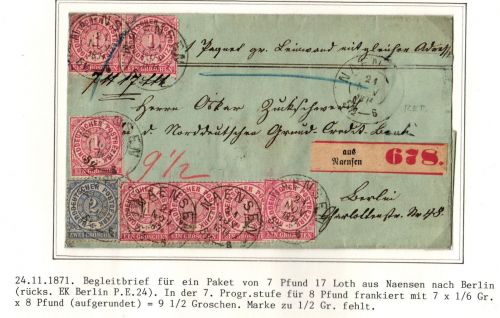 1 Paquet gr. Leinwand mit gleicher Adresse
7 ℔ 17 Lth
Herrn Oskar Zuckschwerdt
d Norddeutschen Grund Credit Bank
9 1/2
aus
Naensen
678.
Berlin
Charlottenstr. No 48.
NAENSEN
24.11.1871. Begleitbrief für ein Paket von 7 Pfund 17 Loth aus Naensen nach Berlin
(rücks. EK Berlin P.E.24). In der 7. Progr.stufe für 8 Pfund frankiert mit 7 x 1/6 Gr.
x 8 Pfund (aufgerundet) = 9 1/2 Groschen. Marke zu 1/2 Gr. fehlt.